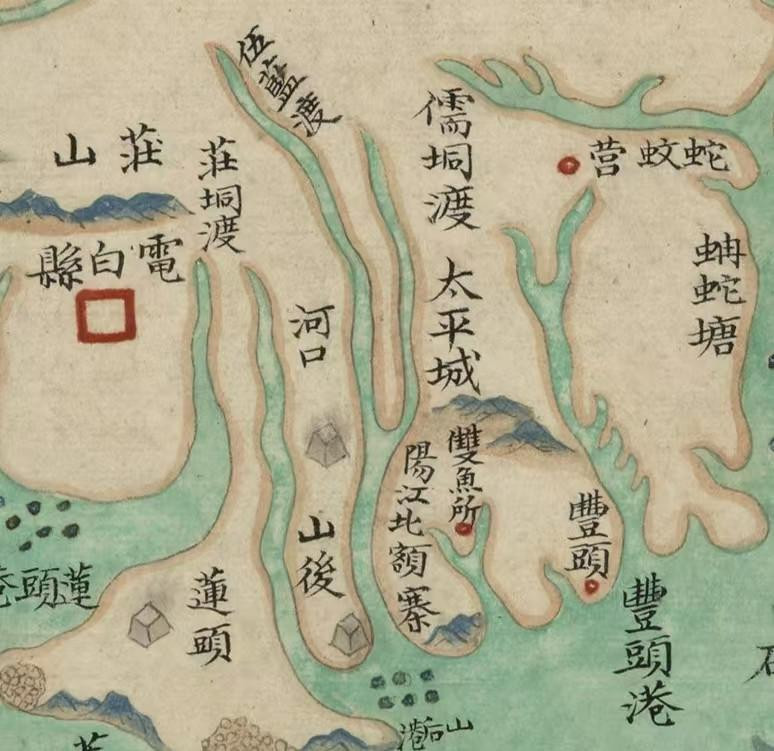 伍藍渡
儒垌渡
莊山
莊垌渡
蛇蚊营
電白縣
蚺蛇塘
太平城
河口
雙魚所
陽江北額寨
豐頭
山後
蓮頭
豐頭港
蓮頭
山后港